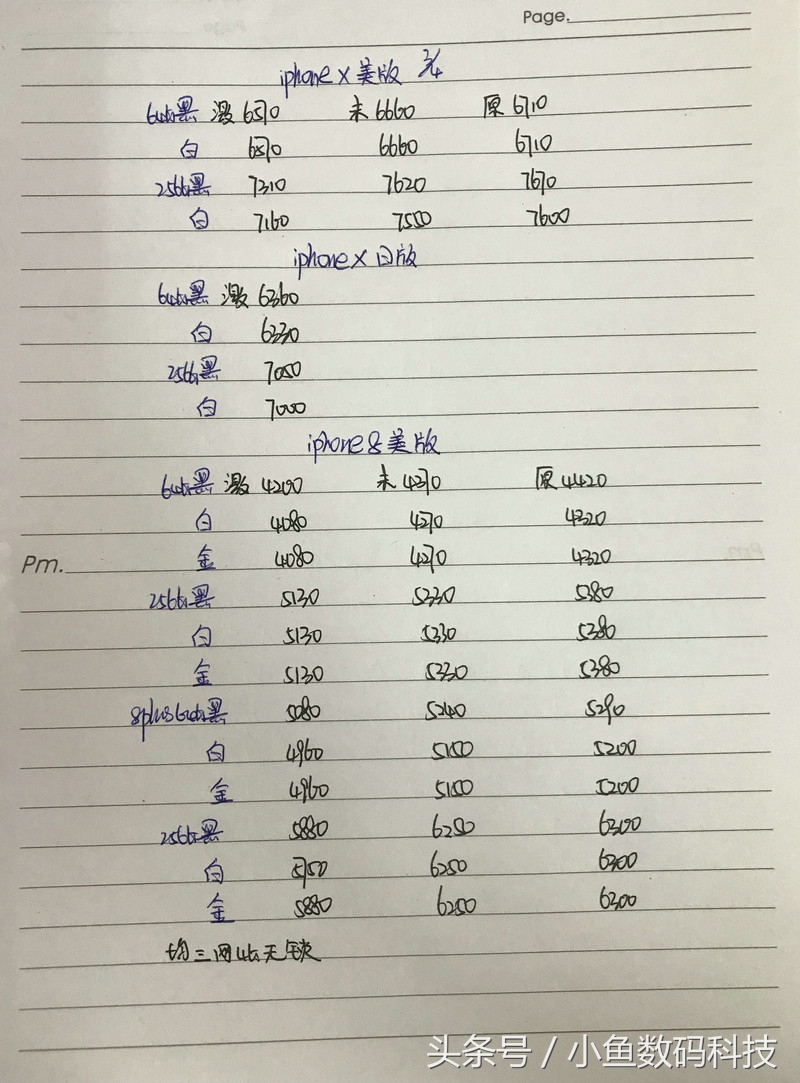 Page.
iphone X 美版 3/4
64G黑 激6570 未6660 原6710
白 6570 6660 6710
256G黑 7310 7620 7670
白 7160 7550 7600
iphone X 日版
64G黑 激 6360
白 6330
256G黑 7050
白 7000
iphone 8 美版
64G黑 激 4200 未 4370 原 4420
白 4080 4270 4320
Pm. 金 4080 4270 4320
256G黑 5130 5330 5380
白 5130 5330 5380
金 5130 5330 5380
8plus 64G黑 5080 5240 5290
白 4960 5150 5200
金 4960 5150 5200
256G黑 5880 6250 6300
白 5750 6250 6300
金 5880 6250 6300
均三网4G无锁
头条号 / 小鱼数码科技